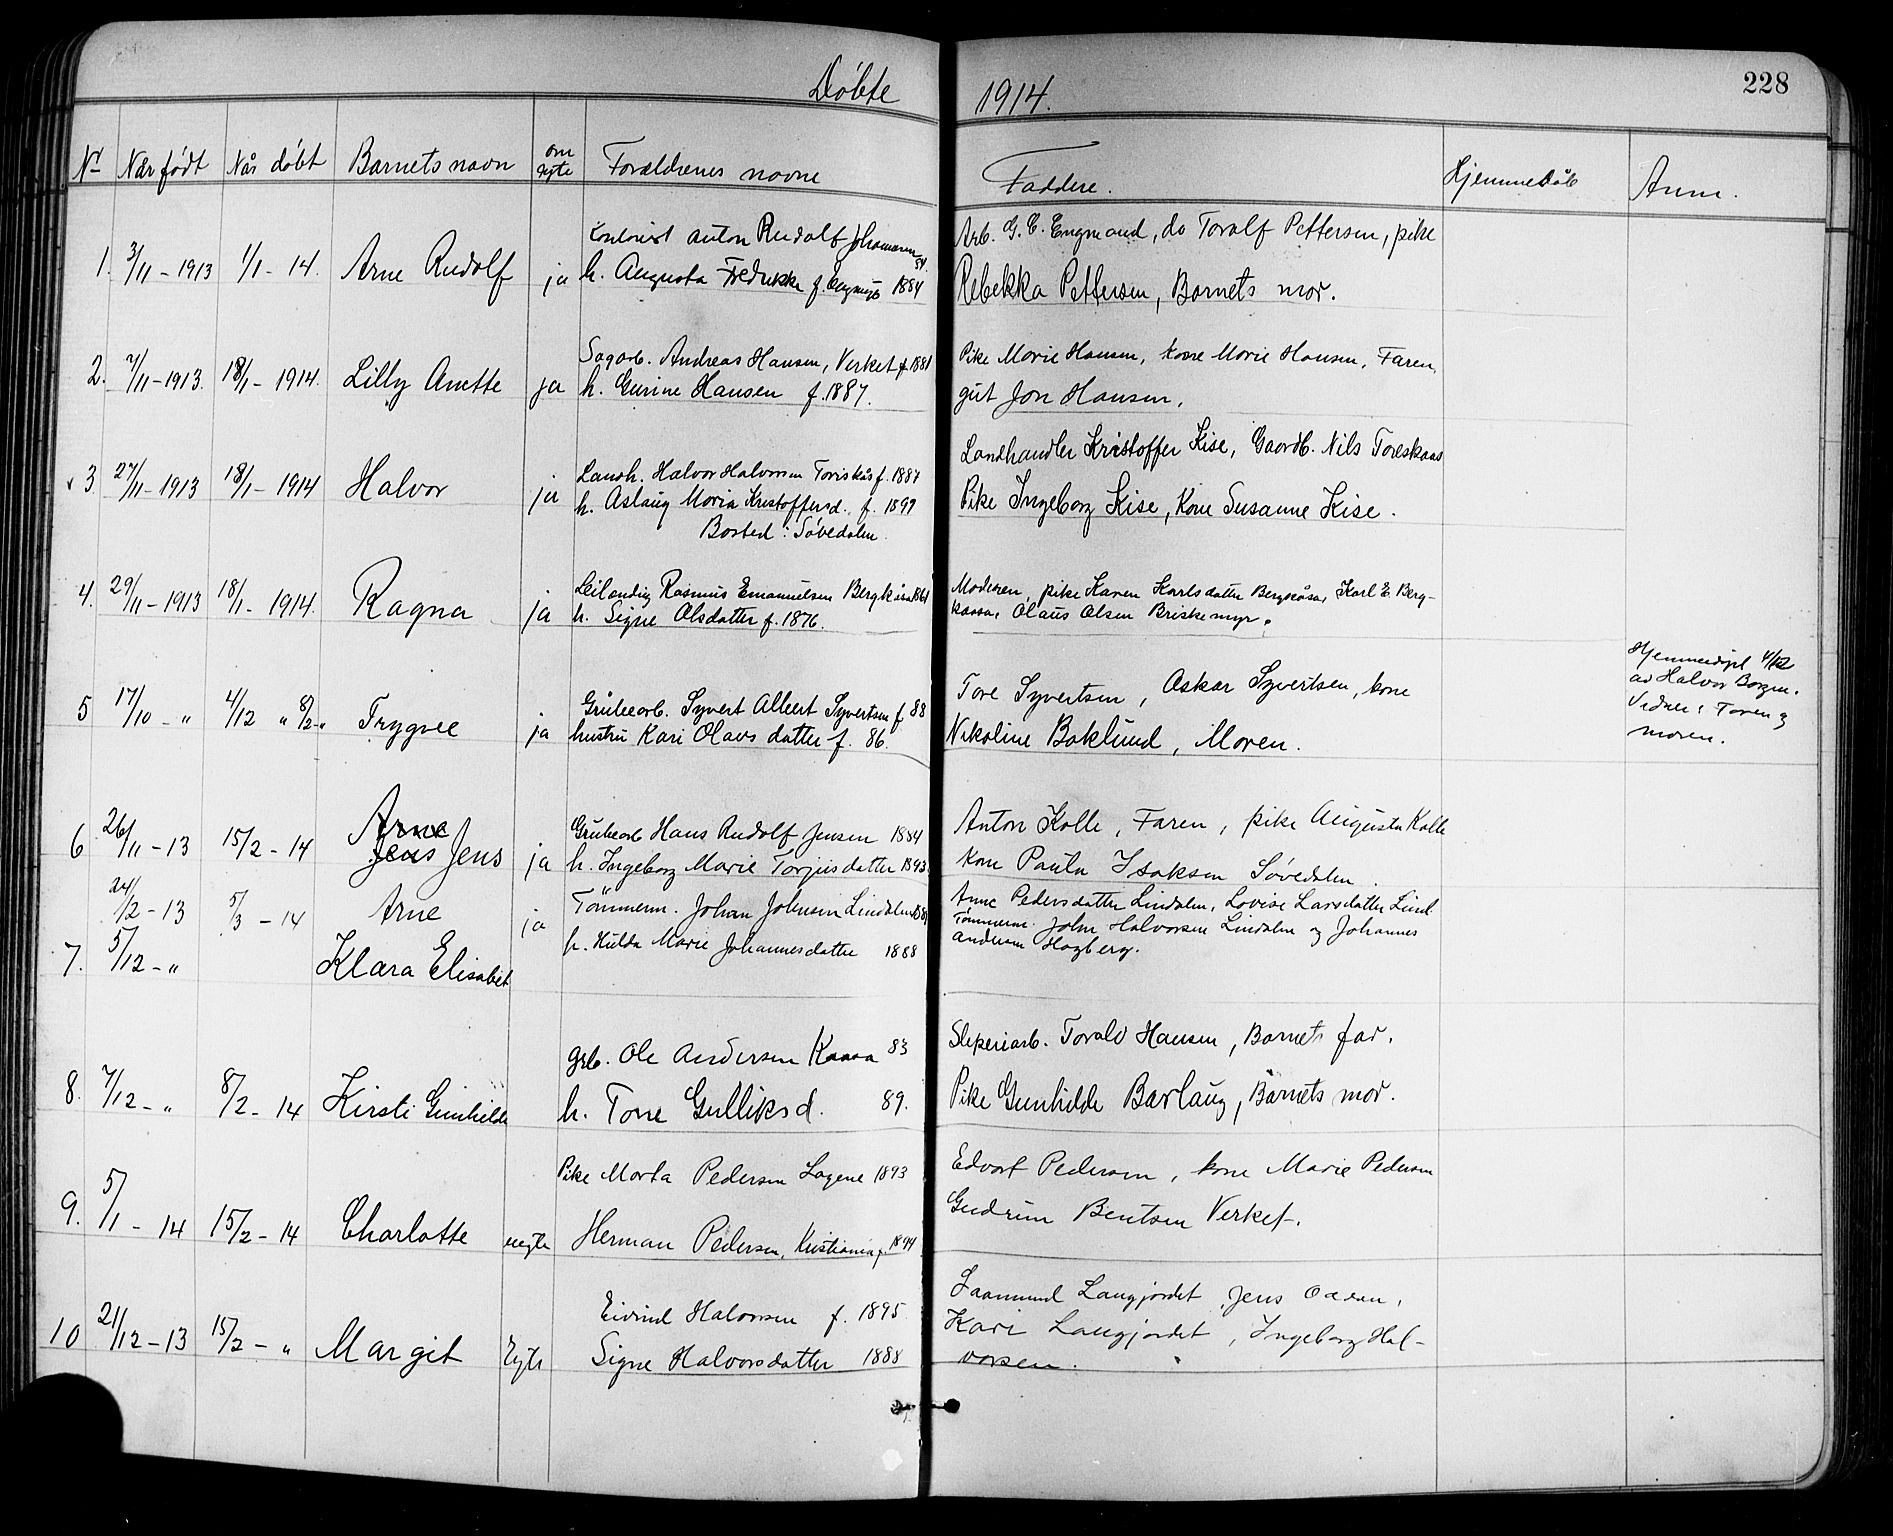 Døbte 1914.
228
Nr Nær født Når døbt Barnets navn om egte Forældrenes navne Faddere. Hjemmedåb Anm.
Kontorist Anton Rudolf Johansen
1. 3/11-1913 1/1-14. Arne Rudolf ja h. Augusta Fredrikke f. 1884
Arb. G. C. Engmand, do Toralf Pettersen, pike
Rebekka Pettersen, Barnets mor.
Sagarb. Andreas Hansen, Verket f. 1881
2. 7/11-1913. 18/1-1914. Lilly Anette ja h. Gurine Hansen f. 1887.
Pike Marie Hansen, kone Marie Hansen, Faren,
gut Jon Hansen.
Landh. Halvor Halvorsen Toriskås f. 1887
3 27/11-1913 18/1-1914 Halvor ja h. Aslaug Maria Kristoffersd. f. 1897
Bosted: Søvedalen
Landhandler Kristoffer Kise, Gaardb. Nils Toreskaas
Pike Ingeborg Kise, Kone Susanne Kise.
Leilending Rasmus Emanuelsen Bergkåsa 1861
4. 29/11-1913 18/1-1914. Ragna ja h. Signe Olsdatter f. 1876.
Moderen, pike Karen Karlsdatter Bergkåsa, Karl E. Berg-
kaasa, Olaus Olsen Briskemyr.
Grubearb. Syvert Albert Syvertsen f 88
5 17/10-" 4/12 " 8/2-" Trygve ja hustru Kari Olavsdatter f. 86.
Tore Syvertsen, Oskar Syvertsen, kone
Nikoline Baklund, Moren.
Hjemmedøpt 4/12
av Halvor Borgen.
Vidner: Faren og
moren.
Arne
Grubearb Hans Rudolf Jensen 1884
6 26/11-13 15/2-14 Jens Jens ja h. Ingeborg Marie Torjusdatter 1893
Anton Kolle, Faren, pike Augusta Kolle
Kone Paula Isaksen Søvedalen.
24/2-13 5/3-14 Arne ja Tømmerm. Johan Johnsen Lindalen
7. 5/12-" Klara Elisabet h. Hulda Marie Johannesdatter 1888
Anne Pedersdatter Lindalen, Lovise Larsdatter Lind.
Tømmerm. John Halvorsen Lindalen og Johannes
Andersen Hogberg.
Grb. Ole Andersen Kaasa 83
8. 7/12-" 8/2-14 Kirsti Gunhilde h. Tone Gulliksd. 89.
Sliperiarb. Torald Hansen, Barnets far.
Pike Gunhilde Barlaug, Barnets mor.
Pike Marta Pedersen Lagene 1893
9. 5/1-14 15/2-14 Charlotte uegte Herman Pedersen, Kristiania f. 1894
Edvart Pedersen, kone Marie Pedersen
Gudrun Bentsen Verket.
Eivind Halvorsen f. 1895
10 21/12-13 15/2-" Margit Egte Signe Halvorsdatter 1888
Saamund Langjordet, Jens Aasen,
Kari Langjordet, Ingeborg Hal-
vorsen.